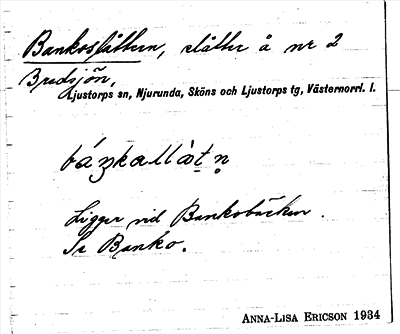 Bankosslåtten, slåtter å nr 2
Bredsjön,
Ljustorps sn, Njurunda, Sköns och Ljustorps tg, Västernorrl. l.
Ligger vid Bankobäcken.
Se Banko.
ANNA-LISA ERICSON 1934